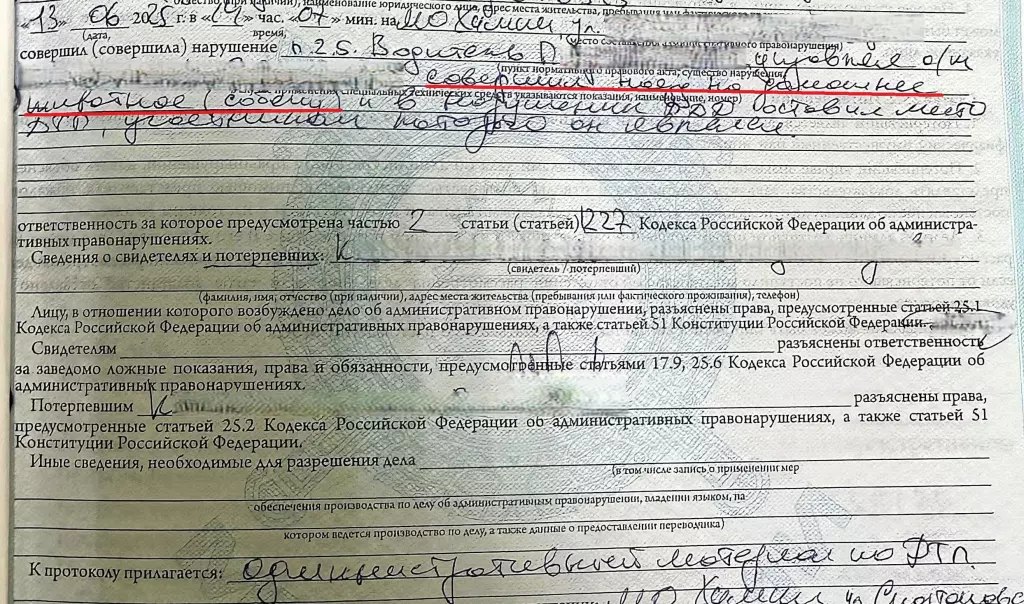 «13» 06 2025 г. в «14» час. «07» мин. на МО Химки ул.
(дата, время, место составления административного правонарушения)
совершил (совершила) нарушение п. 2.5. Водитель
управляя а/м
(пункт нормативного правового акта, существо нарушения,
совершил наезд на домашнее
применении специальных технических средств указываются показания, наименование, номер)
животное (собаку) и в нарушении ПДД оставил место
ДТП, участником которого он являлся.
ответственность за которое предусмотрена частью 2 статьи (статьей) 12.27 Кодекса Российской Федерации об администра-
тивных правонарушениях.
Сведения о свидетелях и потерпевших: К
(свидетель / потерпевший)
(фамилия, имя, отчество (при наличии), адрес места жительства (пребывания или фактического проживания), телефон)
Лицу, в отношении которого возбуждено дело об административном правонарушении, разъяснены права, предусмотренные статьей 25.1
Кодекса Российской Федерации об административных правонарушениях, а также статьей 51 Конституции Российской Федерации.
Свидетелям разъяснены ответственность
за заведомо ложные показания, права и обязанности, предусмотренные статьями 17.9, 25.6 Кодекса Российской Федерации об
административных правонарушениях.
Потерпевшим К разъяснены права,
предусмотренные статьей 25.2 Кодекса Российской Федерации об административных правонарушениях, а также статьей 51
Конституции Российской Федерации.
Иные сведения, необходимые для разрешения дела
(в том числе запись о применении мер
обеспечения производства по делу об административным правонарушении, владении языком, на
котором ведется производство по делу, а также данные о предоставлении переводчика)
К протоколу прилагается: административный материал по ДТП.
МО Химки ул.